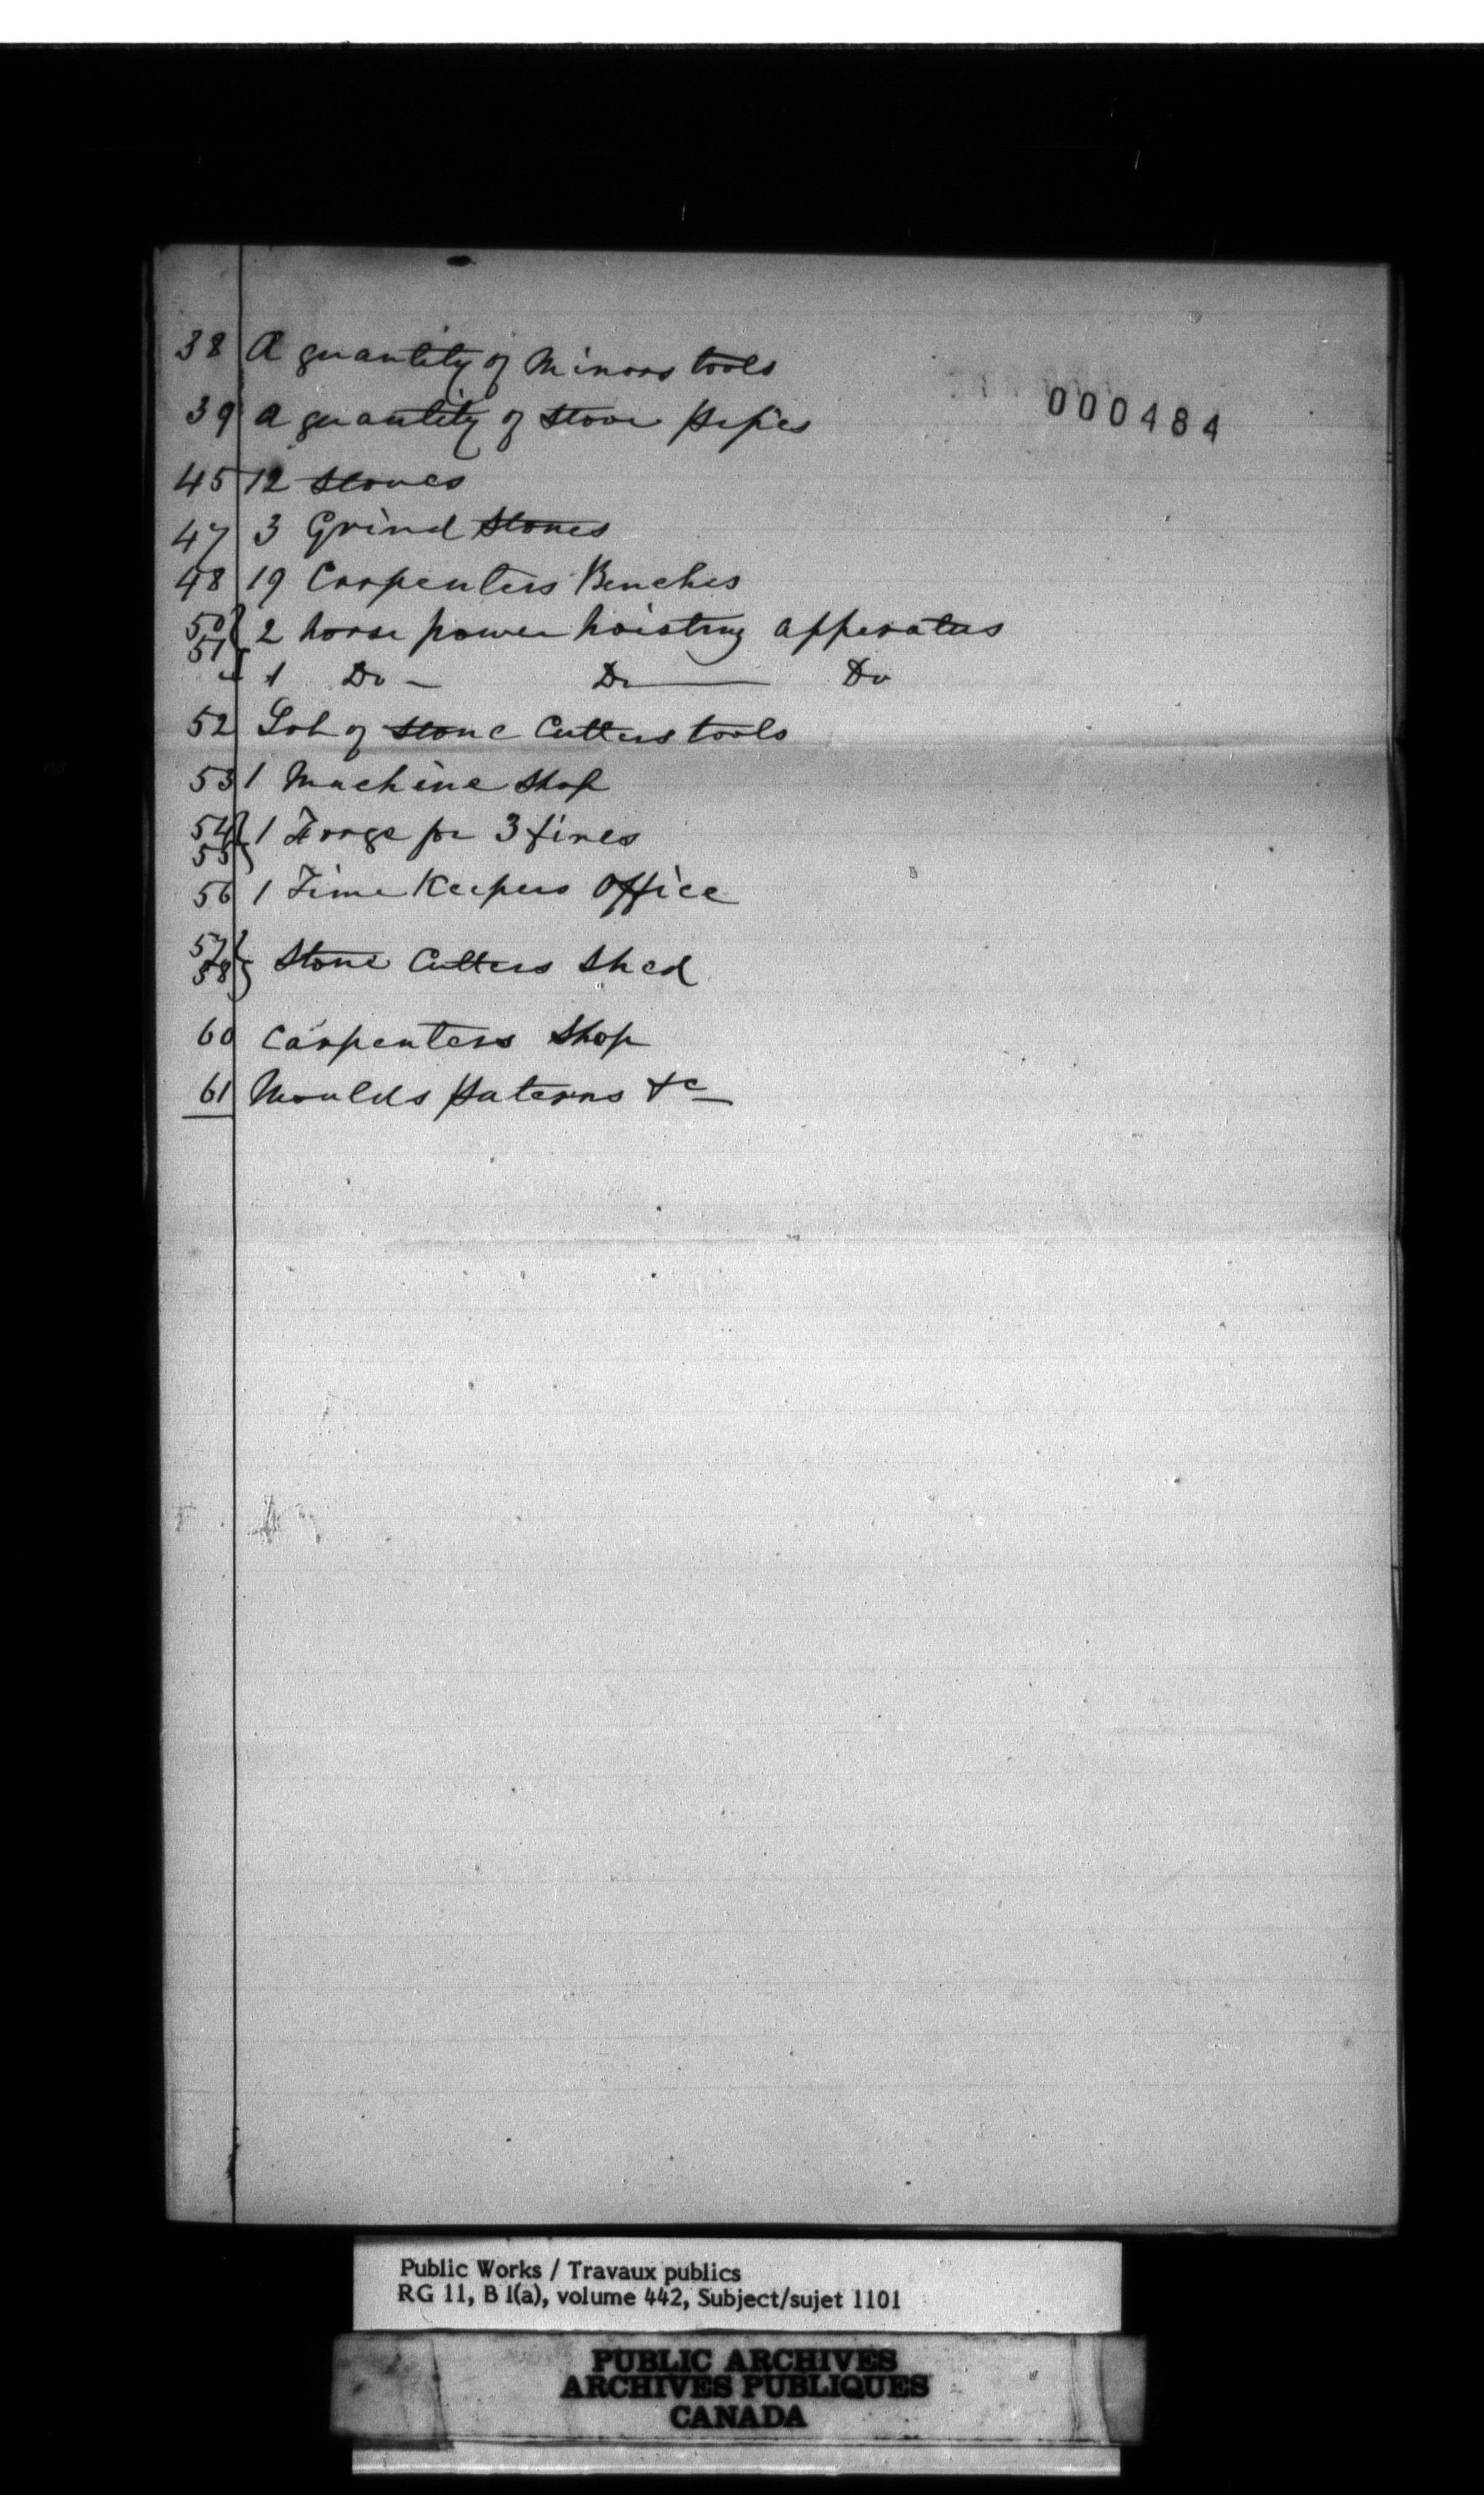 38 A quantity of Minors tools
000484
39 a quantity of Stove pipes
45 12 Stoves
47 3 Grind Stones
48 19 Carpenters Benches
50 51 } 2 horse power hoisting apperatus
" 1 Do - Do — Do
52 Lot of Stone Cutters tools
53 1 Machine Shop
54 55 } 1 Forge for 3 fires
56 1 Time Keepers Office
57 58 } Stone Cutters Shed
60 Carpenters Shop
61 Moulds paterns &c
Public Works / Travaux publics
RG 11, B 1(a), volume 442, Subject/sujet 1101
PUBLIC ARCHIVES
ARCHIVES PUBLIQUES
CANADA